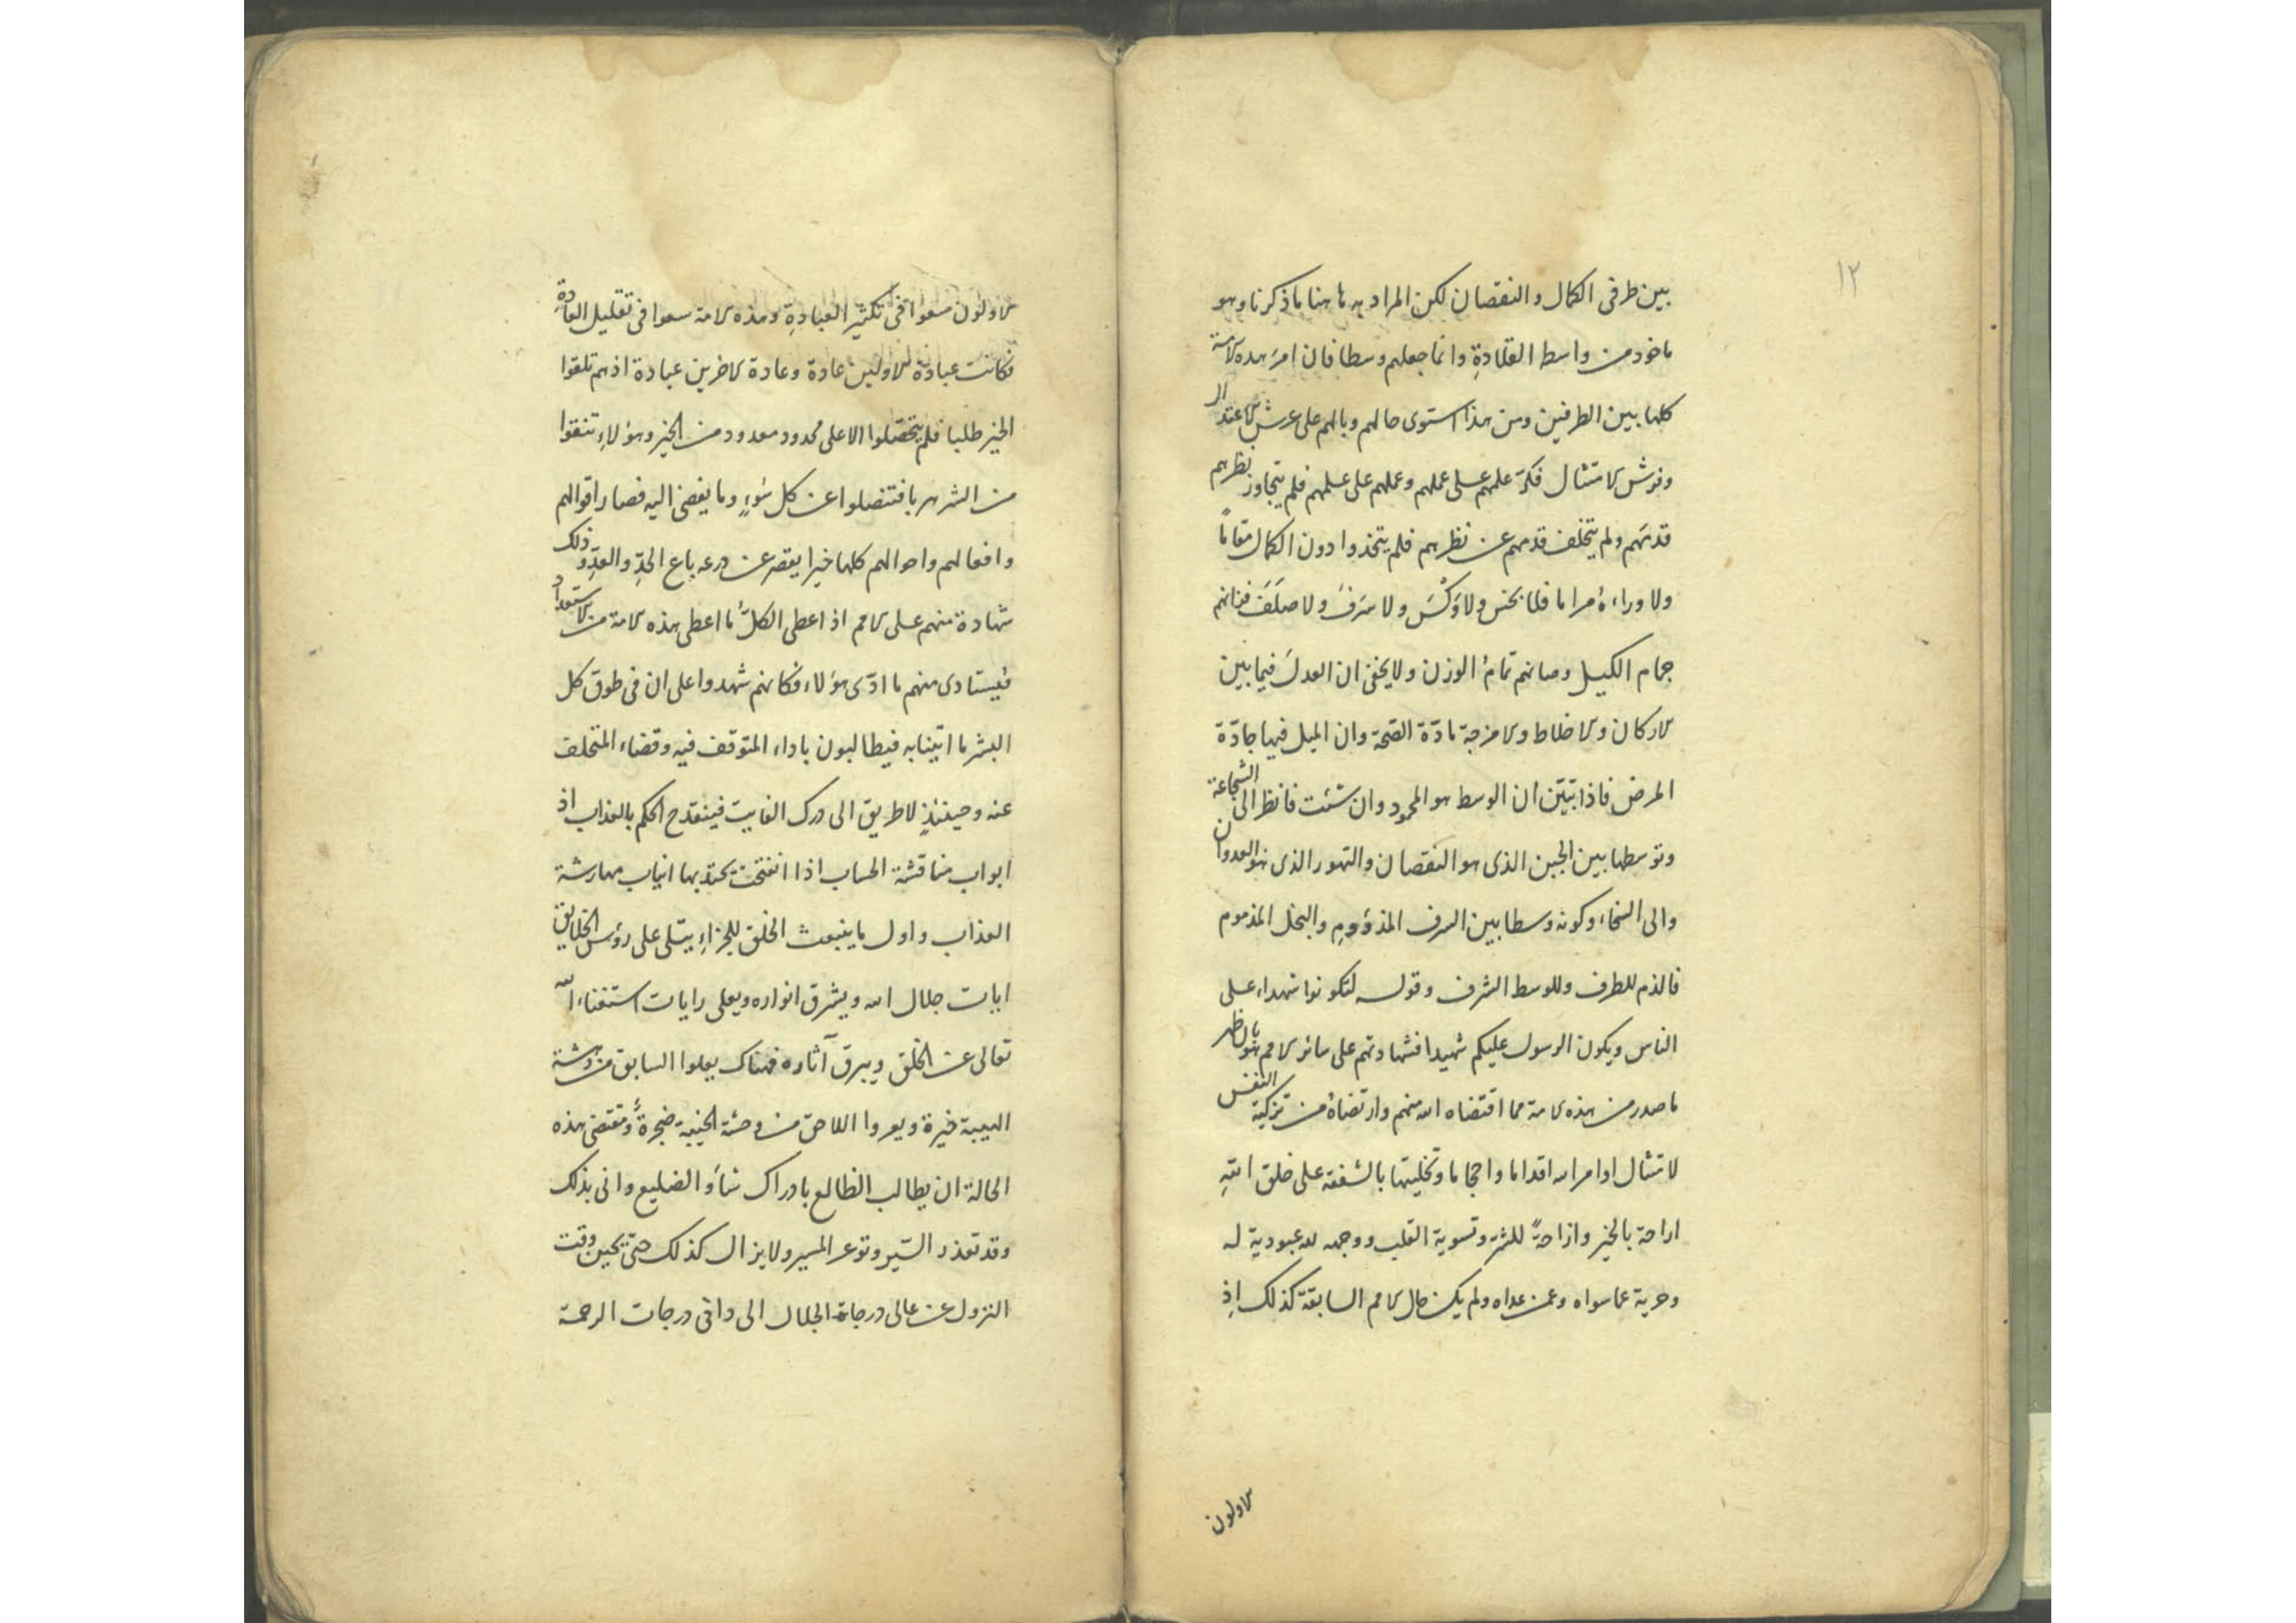 ١٢
بين طرفى الكمال والنقصان لكن المراد به هاهنا ماذكرنا وهو
ماخوذ من واسط القلادةِ وانما جعلهم وسطا فان امرَ هذه الامة
كلها بين الطرفين ومن هذا استوى حالهم وبالهم على عرش الاعتدال
وفرش الامتثال فكرّ علمهم على عملهم وعملهم على علمهم فلم يتجاوز نظرهم
قدمَهم ولم يتخلف قدمهم عن نظرهم فلم يتخذوا دون الكمال مقاماً
ولا وراءهُ مراما فلا بخس ولا وَكْسَ ولا سَرفَ ولا صلَفَ
جمام الكيل وصانهم تمامُ الوزن ولا يخفى ان العدلَ فيما بين
الاركان والاخلاط والامزجة مادّة الصّحة وان الميل فيها جادّة
المرض فاذا تبيّن ان الوسط هو المحمود وان شئت فانظر الى الشجاعة
وتوسطها بين الجبن الذى هو النقصان والتهور الذى هو العدوان
والى السخاء وكونه وسطا بين السرف المذؤومِ والبخل المذموم
فالذم للطرف وللوسط الشرف وقوله لتكونوا شهداء على
الناس ويكون الرسول عليكم شهيدا فشهادتهم على سائر الامم هو
ما صدر من هذه الامة مما اقتضاه الله منهم وارتضاهُ من تزكية النفس
لامتثال اوامر الله اقداما واحجاما وتخليتها بالشفقة على خلق اللهِ
اراحة بالخير وازاحةً للشر وتسوية القلب ووجهه لله عبودية له
وحرية عما سواه وعمن عداه ولم يكن حال الامم السابقة كذلك اِذِ
الاولون
الاولون سعوا فى تكثير العبادةِ وهذه الامة سعوا فى تقليل العادةِ
فكانت عبادة الاولين عادة وعادة الاخرين عبادة اذ هم تلقوا
الخير طلبا فلم يتحصّلوا الا على محدود معدود من الخير وهؤلاءِ تنقوا
من الشر هربا فتنصلوا عن كل سُوءٍ وما يفضى اليه فصار اقوالهم
وافعالهم واحوالهم كلها خيرا يقصر عن ذرعه باع الحدِّ والعدِّ وذلك
شهادة منهم على الامم اذ اعطى الكلَّ ما اعطى هذه الامة من الاستعداد
فيستادى منهم ما ادّى هؤلاء فكانهم شهدوا على ان فى طوق كل
البشر ما اتينا به فيطالبون باداء المتوقف فيه وقضاء المتخلف
عنه وحينئذٍ لا طريق الى درك الفايت فينقدح الحكم بالعذاب اذ
ابواب مناقشة الحساب اذا انفتحت يحتذبها انياب مهارشة
العذاب واول ما ينبعث الخلق للجزاءِ يتلى على رؤس الخلايق
ايات جلال الله ويشرق انواره ويعلى رايات استغناء الله
تعالى عن الخلق ويبرق آثاره فهناك يعلوا السابق من دهشة
الهيبة خيرة ويعروا اللاحق من وحشة الخيبة ضجرةٌ ومقتضى هذه
الحالة ان يطالب الظالع بادراك شأو الضليع وانى بذلك
وقد تعذر السّير وتوعر المسير ولا يزال كذلك حتّى يحين وقت
النزول عن عالى درجات الجلال الى دانى درجات الرحمة